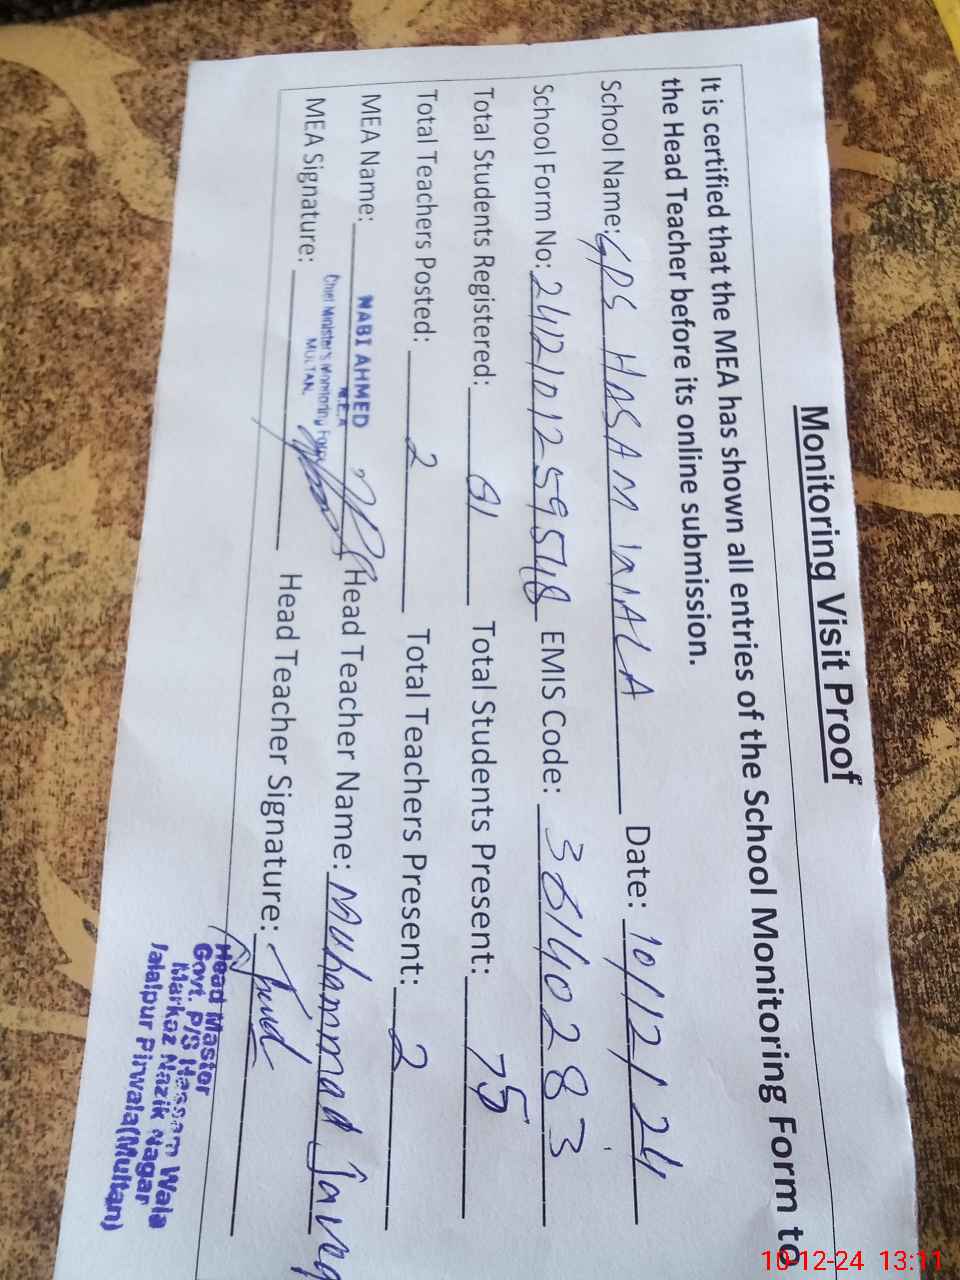 Monitoring Visit Proof
It is certified that the MEA has shown all entries of the School Monitoring Form to
the Head Teacher before its online submission.
School Name: GPS HASAM WALA Date: 10/12/24
School Form No: EMIS Code: 36140283
Total Students Registered: 81 Total Students Present: 75
Total Teachers Posted: 2 Total Teachers Present: 2
MEA Name: NABI AHMED Head Teacher Name: Muhammad
M.E.A
Chief Minister's Monitoring Force
MULTAN.
MEA Signature: Head Teacher Signature:
Head Master
Govt. P/S Hassam Wala
Markaz Nazik Nagar
Jalalpur Pirwala (Multan)
10-12-24 13:11